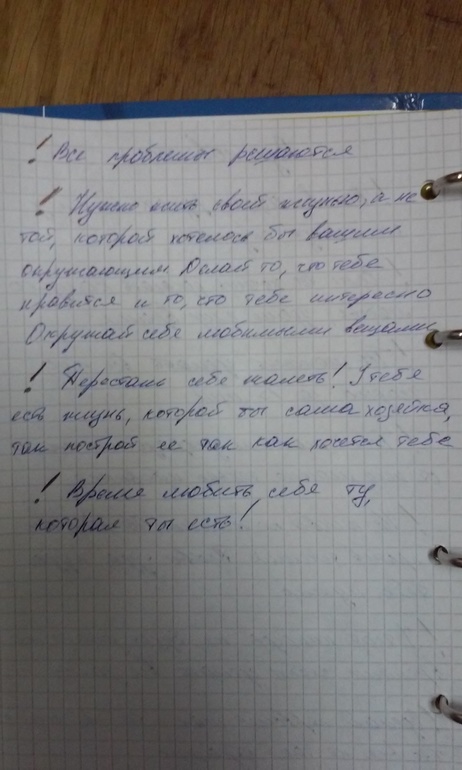 ! Все проблемы решаются
! Нужно жить своей жизнью, а не
той, которой хотелось бы вашим
окружающим. Делай то, что тебе
нравится и то, что тебе интересно
Окружай себя любимыми вещами
! Перестань себе жалеть! У тебя
есть жизнь, которой ты сама хозяйка,
так построй ее так как хочется тебе
! Время любить себя ту,
которая ты есть!